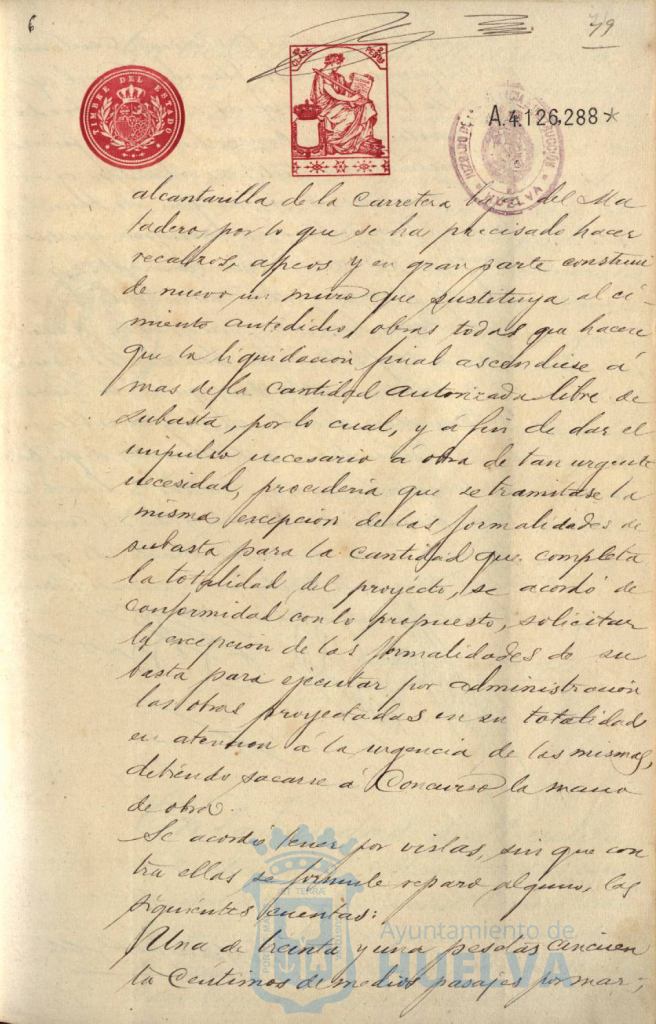 6
79
TIMBRE DEL ESTADO
CLASE PESETAS
A.4.126.288*
HUELVA
alcantarilla de la Carretera del Ma
tadero, por lo que se ha precisado hacer
recalzos, apeos y en gran parte construir
de nuevo un muro que sustituya al ci-
miento antedicho, obras todas que hacen
que la liquidacion final ascendiese á
mas de la Cantidad Autorizada libre de
subasta, por lo cual, y á fin de dar el
impulso necesario á obra de tan urgente
necesidad, procederia que se tramitase la
misma excepcion de las formalidades de
subasta para la cantidad que completa
la totalidad del proyecto, se acordó de
conformidad con lo propuesto, solicitar
la excepcion de las formalidades de su
basta para ejecutar por administracion
las obras proyectadas en su totalidad
en atencion á la urgencia de las mismas,
debiendo sacarse á Concurso la mano
de obra.
Se acordó tener por vistas, sin que con
tra ellas se formule reparo alguno, las
siguientes cuentas:
Una de treinta y una pesetas cincuen
ta Centimos de medios pasajes por mar;
Ayuntamiento de
HUELVA